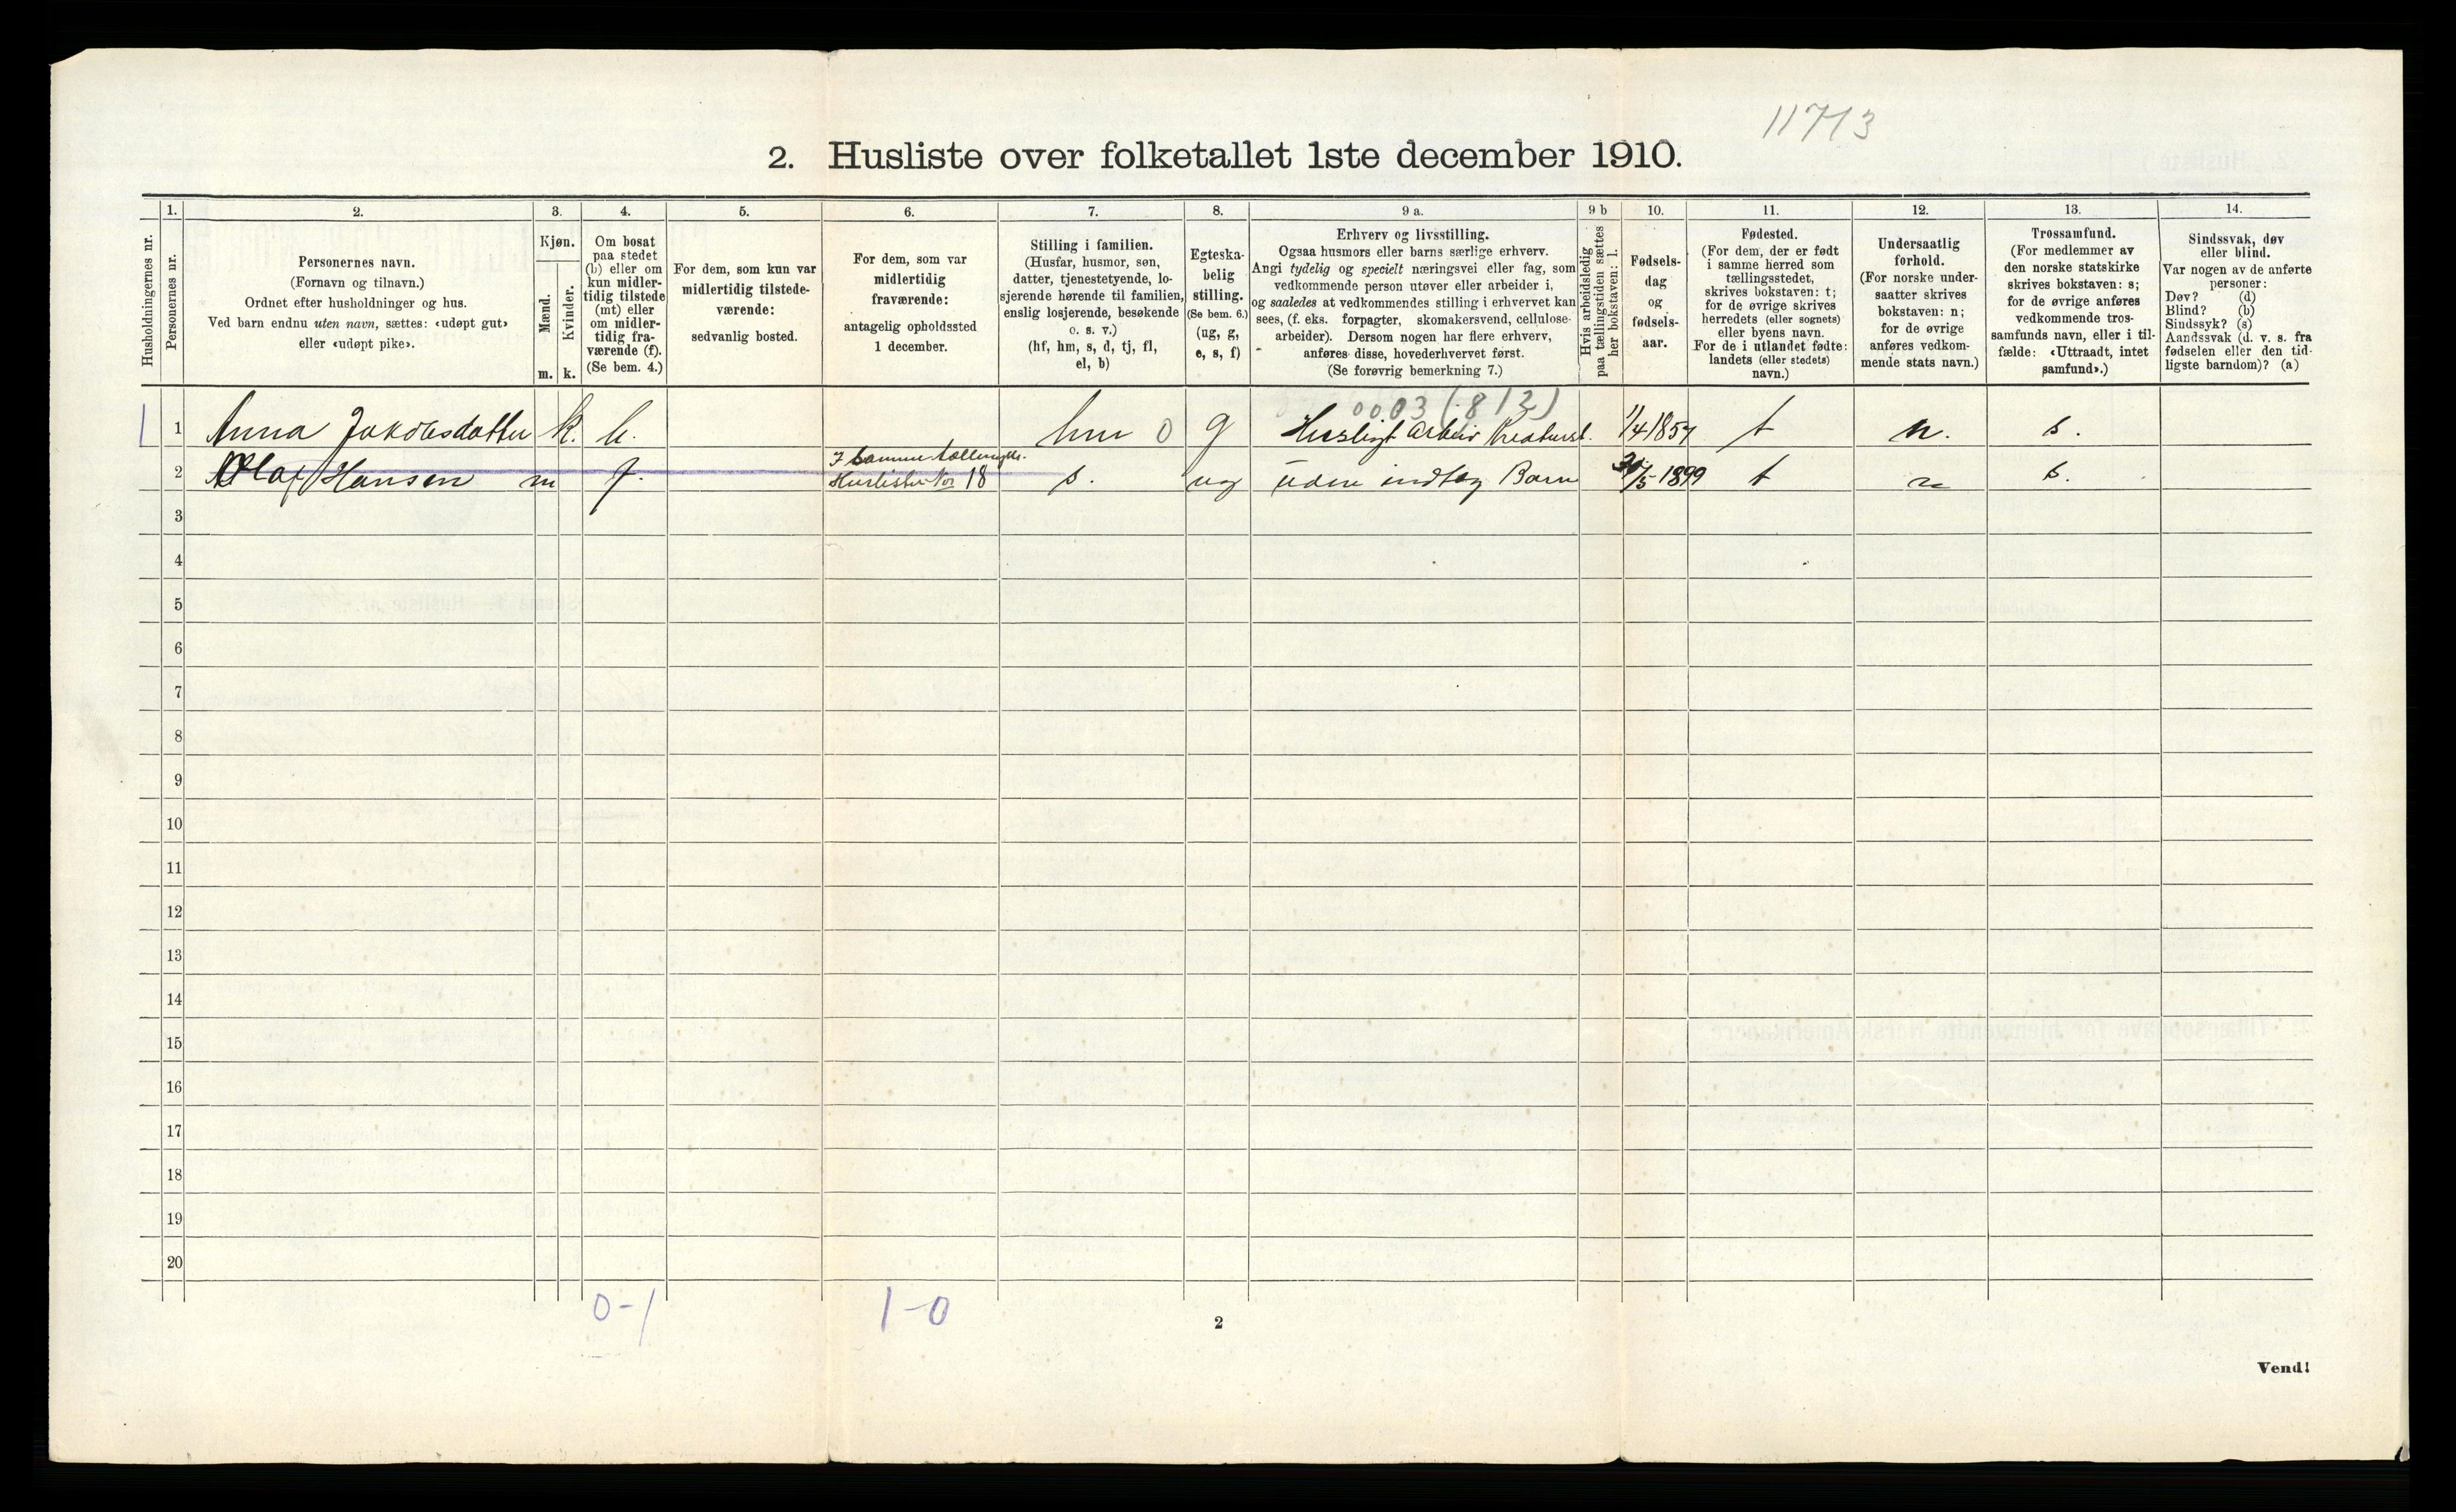 11713
2. Husliste over folketallet 1ste december 1910.
Husholdningernes nr.
1.
Personernes nr.
2.
Personernes navn.
(Fornavn og tilnavn.)
Ordnet efter husholdninger og hus.
Ved barn endnu uten navn, sættes: «udøpt gut»
eller «udøpt pike».
3.
Kjøn.
Mænd.
Kvinder.
m. k.
4.
Om bosat
paa stedet
(b) eller om
kun midler-
tidig tilstede
(mt) eller
om midler-
tidig fra-
værende (f).
(Se bem. 4.)
5.
For dem, som kun var
midlertidig tilstede-
værende:
sedvanlig bosted.
6.
For dem, som var
midlertidig
fraværende:
antagelig opholdssted
1 december.
7.
Stilling i familien.
(Husfar, husmor, søn,
datter, tjenestetyende, lo-
sjerende hørende til familien,
enslig losjerende, besøkende
o. s. v.)
(hf, hm, s, d, tj, fl,
el, b)
8.
Egteska-
belig
stilling.
(Se bem. 6.)
(ug, g,
e, s, f)
9 a.
Erhverv og livsstilling.
Ogsaa husmors eller barns særlige erhverv.
Angi tydelig og specielt næringsvei eller fag, som
vedkommende person utøver eller arbeider i,
og saaledes at vedkommendes stilling i erhvervet kan
sees, (f. eks. forpagter, skomakersvend, cellulose-
arbeider). Dersom nogen har flere erhverv,
anføres disse, hovederhvervet først.
(Se forøvrig bemerkning 7.)
9 b
Hvis arbeidsledig
paa tællingstiden sættes
her bokstaven: l.
10.
Fødsels-
dag
og
fødsels-
aar.
11.
Fødested.
(For dem, der er født
i samme herred som
tællingsstedet,
skrives bokstaven: t;
for de øvrige skrives
herredets (eller sognets)
eller byens navn.
For de i utlandet fødte:
landets (eller stedets)
navn.)
12.
Undersaatlig
forhold.
(For norske under-
saatter skrives
bokstaven: n;
for de øvrige
anføres vedkom-
mende stats navn.)
13.
Trossamfund.
(For medlemmer av
den norske statskirke
skrives bokstaven: s;
for de øvrige anføres
vedkommende tros-
samfunds navn, eller i til-
fælde: «Uttraadt, intet
samfund».)
14.
Sindssvak, døv
eller blind.
Var nogen av de anførte
personer:
Døv? (d)
Blind? (b)
Sindssyk? (s)
Aandssvak (d. v. s. fra
fødselen eller den tid-
ligste barndom)? (a)
0003 (812)
1 1 Anna Jakobsdatter k. b. hm 0 g Husligt Arbeid 1/4 1857 t n. s.
I samme
2 Olaf Hansen m f. 18 s. ug uden indtæg Barn /5 1899 t n s.
3
4
5
6
7
8
9
10
11
12
13
14
15
16
17
18
19
20
0-1 1-0
2
Vend!